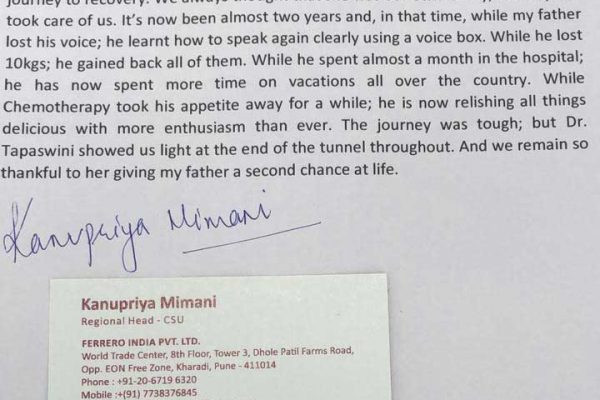 took care of us. It's now been almost two years and, in that time, while my father
lost his voice; he learnt how to speak again clearly using a voice box. While he lost
10kgs; he gained back all of them. While he spent almost a month in the hospital;
he has now spent more time on vacations all over the country. While
Chemotherapy took his appetite away for a while; he is now relishing all things
delicious with more enthusiasm than ever. The journey was tough; but Dr.
Tapaswini showed us light at the end of the tunnel throughout. And we remain so
thankful to her giving my father a second chance at life.
Kanupriya Mimani
Kanupriya Mimani
Regional Head - CSU
FERRERO INDIA PVT. LTD.
World Trade Center, 8th Floor, Tower 3, Dhole Patil Farms Road,
Opp. EON Free Zone, Kharadi, Pune - 411014
Phone : +91-20-6719 6320
Mobile :+(91) 7738376845